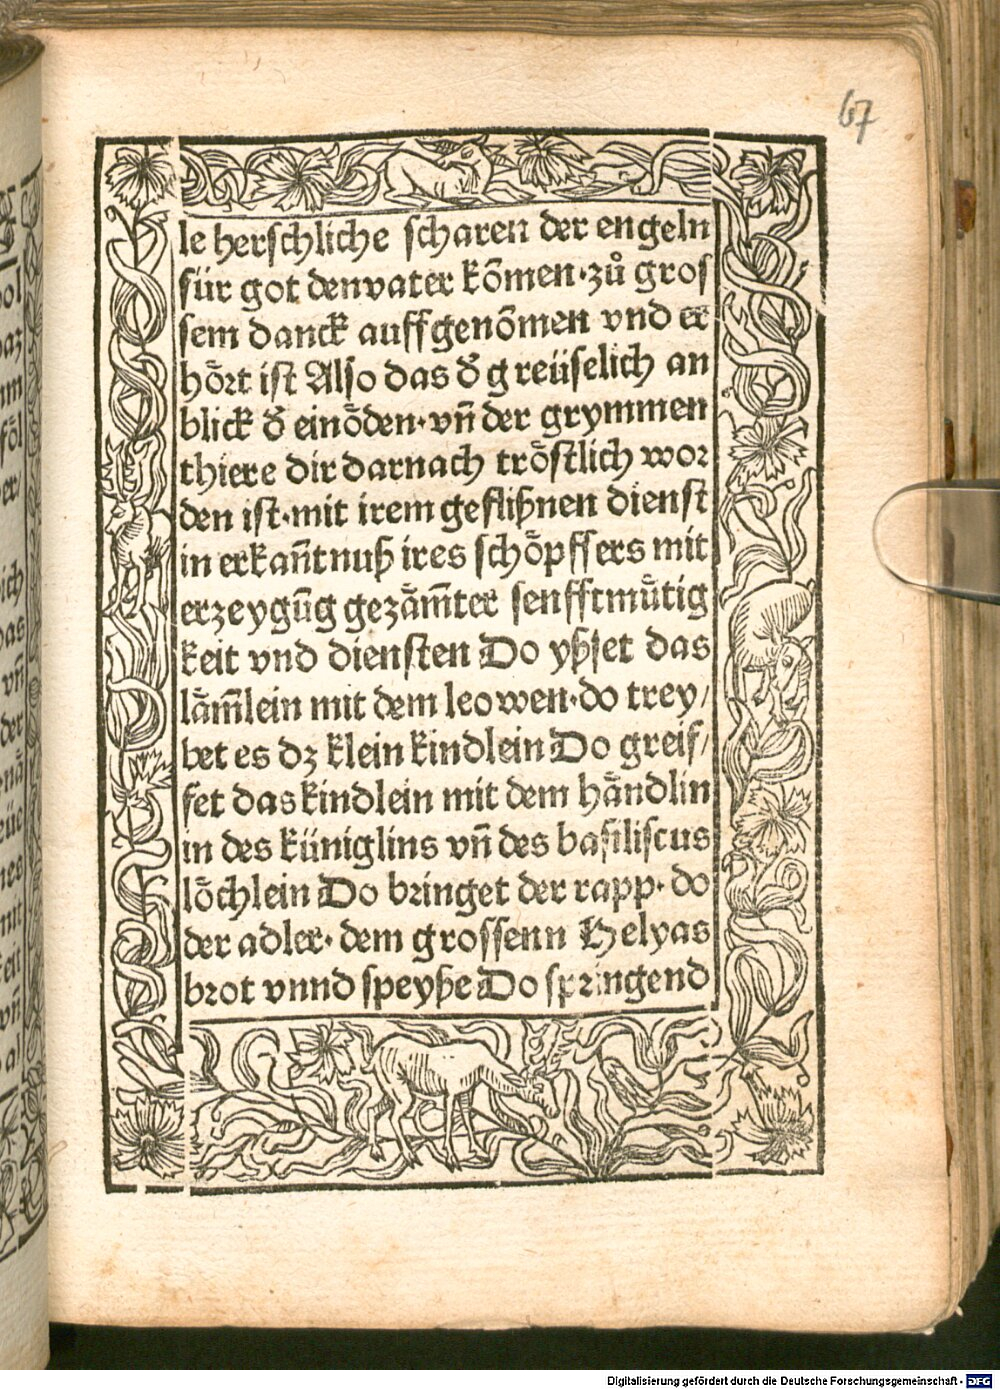 67
le herschliche scharen der engeln
für got denvater kōmen·zů gros
sem danck auffgenōmen vnd er
hoͤrt ist Also das d̕ greüselich an
blick d̕ einoͤden·vn̄ der grymmen
thiere dir darnach troͤstlich wor
den ist·mit irem geflißnen dienst
in erkan̄tnuß ires schoͤpffers mit
erzeygūg gezaͤm̄ter senfftmuͤtig
keit vnd diensten Do yßset das
laͤm̄lein mit dem leowen·do trey/
bet es dz klein kindlein Do greif/
fet das kindlein mit dem haͤndlin
in des küniglins vn̄ des basiliscus
loͤchlein Do bringet der rapp·do
der adler·dem grossenn Helyas
brot vnnd speyße Do springend
Digitalisierung gefördert durch die Deutsche Forschungsgemeinschaft - DFG